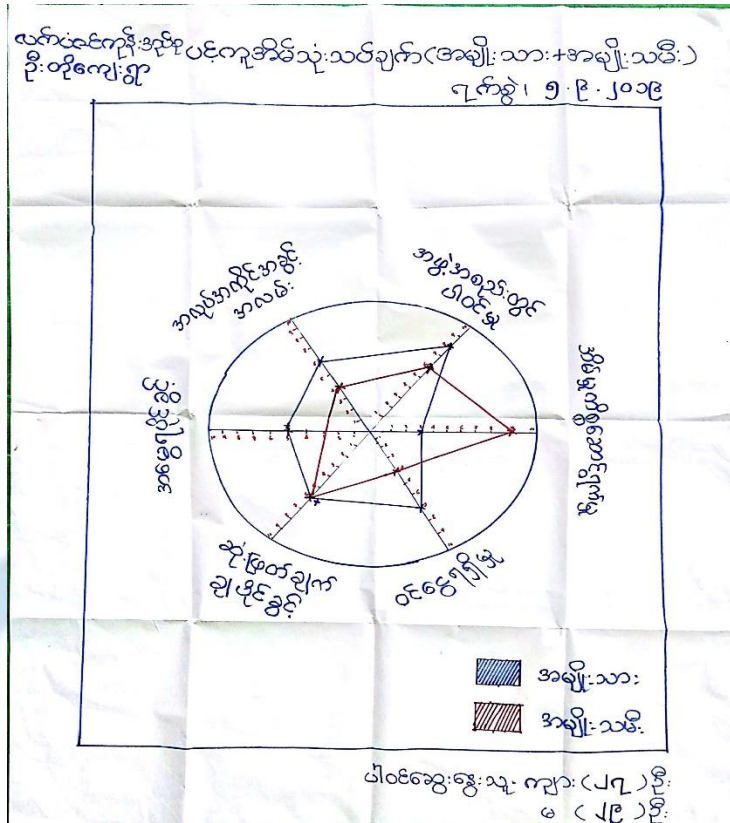 လက်ပံပင်ကုန်းအုပ်စု
ဦးတိုကျေးရွာ
ပင့်ကူအိမ်သုံးသပ်ချက် (အမျိုးသား+အမျိုးသမီး)
ရက်စွဲ၊ ၅.၉.၂၀၁၉
အလုပ်အကိုင်အခွင့်
အလမ်း
အဖွဲ့အစည်းတွင်
ပါဝင်မှု
အိမ်မှုကိစ္စဆောင်ရွက်မှု
ဝင်ငွေရရှိမှု
ဆုံးဖြတ်ချက်
ချပိုင်ခွင့်
အမျိုးသား
အမျိုးသမီး
ပါဝင်ဆွေးနွေးသူ ကျား (၂၇) ဦး
မ (၂၉) ဦး